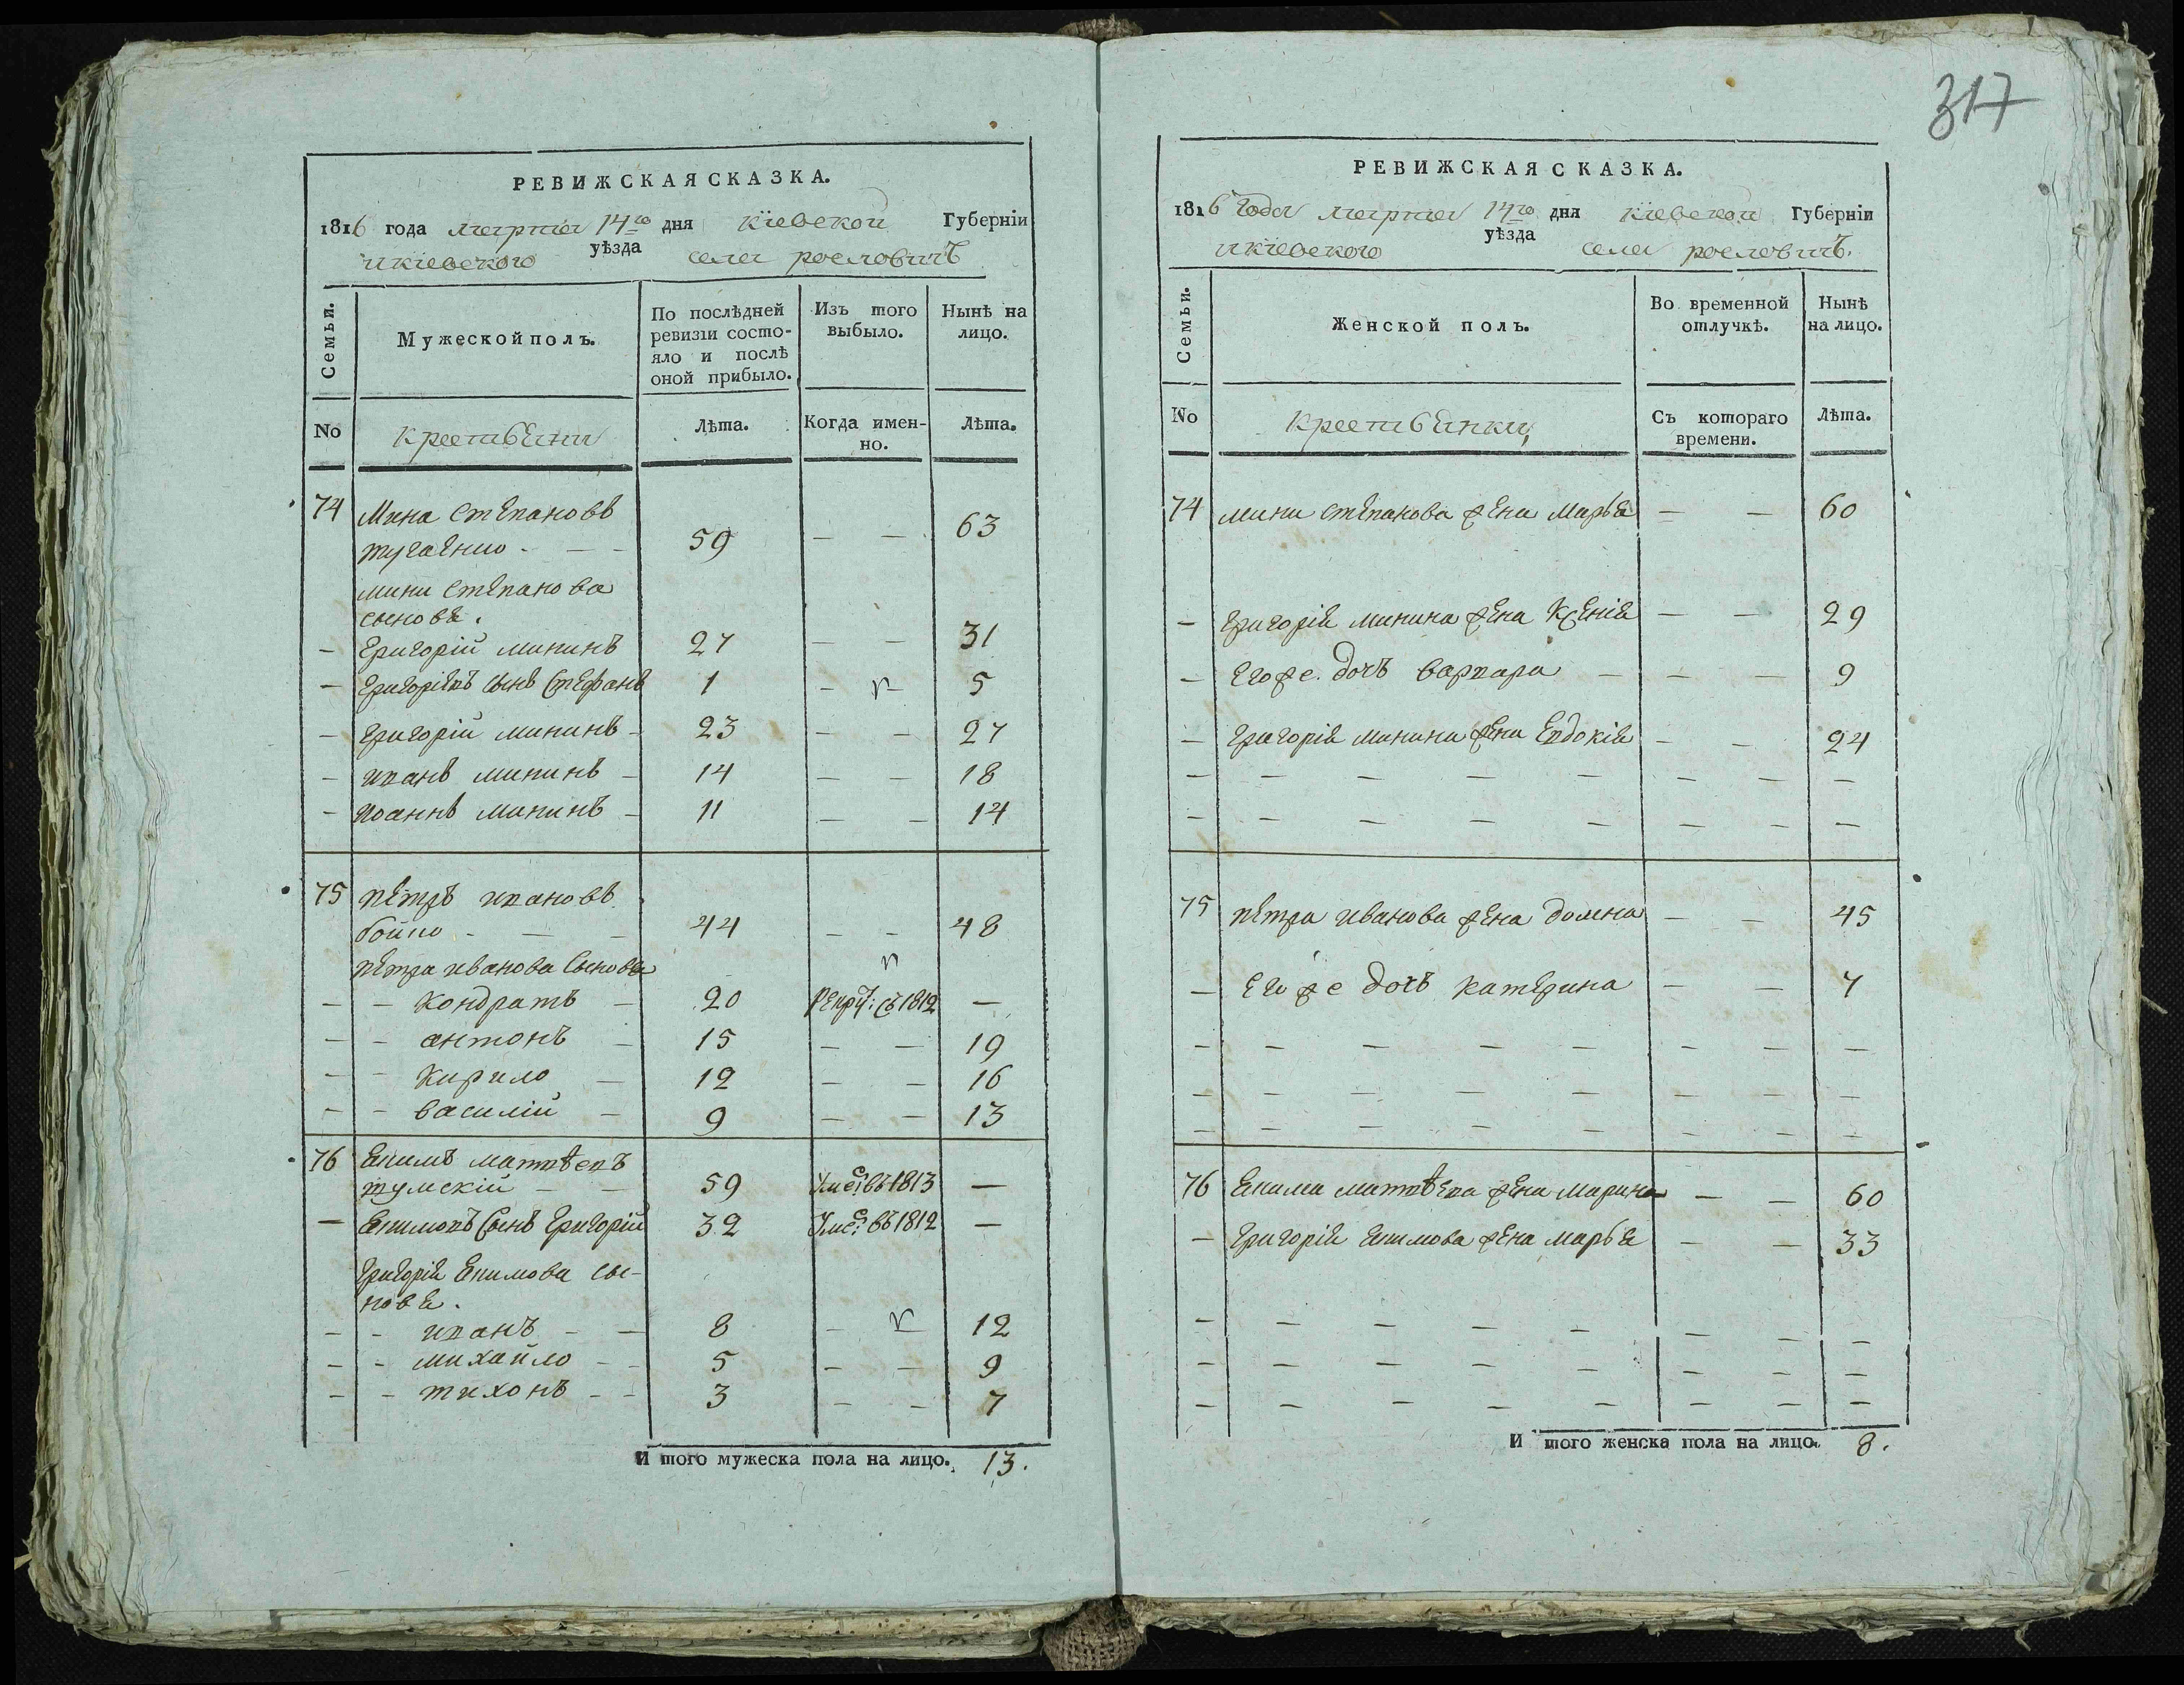 317
РЕВИЖСКАЯ СКАЗКА.
1816 года марта 14го дня Кіевской Губерніи
икіевского уѣзда села рословичъ
Семьи.
Мужеской полъ.
По послѣдней ревизіи состо-
яло и послѣ оной прибыло.
Изъ того выбыло.
Нынѣ на лицо.
No
крестьяни
Лѣта.
Когда имен-
но.
Лѣта.
74 Мина Степановъ
59 — — 63
мини степанова
сыновя.
— Григорій мининъ 27 — — 31
— Григоріевъ сынъ Стефанъ 1 — 5
— Григорій мининъ — 23 — — 27
— иванъ мининъ — 14 — — 18
— иоаннъ мининъ — 11 — — 14
75 петръ ивановъ
бойко — — 44 — — 48
петра иванова сыновя
— — кондратъ — 20 рекру: съ 1812 —
— — антонъ — 15 — — 19
— — кирило — 12 — — 16
— — василій — 9 — — 13
76 Екимъ матвѣевъ
тумскій — — 59 Умеръ въ 1813 —
— Екимовъ сынъ Григорій 32 Умеръ въ 1812 —
Григорія Екимова сы-
новя.
— — иванъ — — 8 — 12
— — михайло — — 5 — — 9
— — тихонъ — — 3 — — 7
И того мужеска пола на лицо. 13.
РЕВИЖСКАЯ СКАЗКА.
1816 года марта 14го дня кіевской Губерніи
икіевского уѣзда села рословичъ.
Семьи.
Женской полъ.
Во временной отлучкѣ.
Нынѣ на лицо.
No
крестьянки,
Съ котораго времени.
Лѣта.
74 мини степанова жена марья — — 60
— Григорія минина жена Ксенія — — 29
— Его же дочъ варвара — — — 9
— Григорія минина жена Евдокія — — 24
— — — — — — — —
— — — — — — — —
75 петра иванова жена домна — — 45
— Его же дочъ катерина — — 7
— — — — — — — —
— — — — — — — —
— — — — — — — —
76 Екима матвѣева жена марина — — 60
— Григорія екимова жена марья — — 33
— — — — — — — —
— — — — — — — —
— — — — — — — —
И того женска пола на лицо. 8.